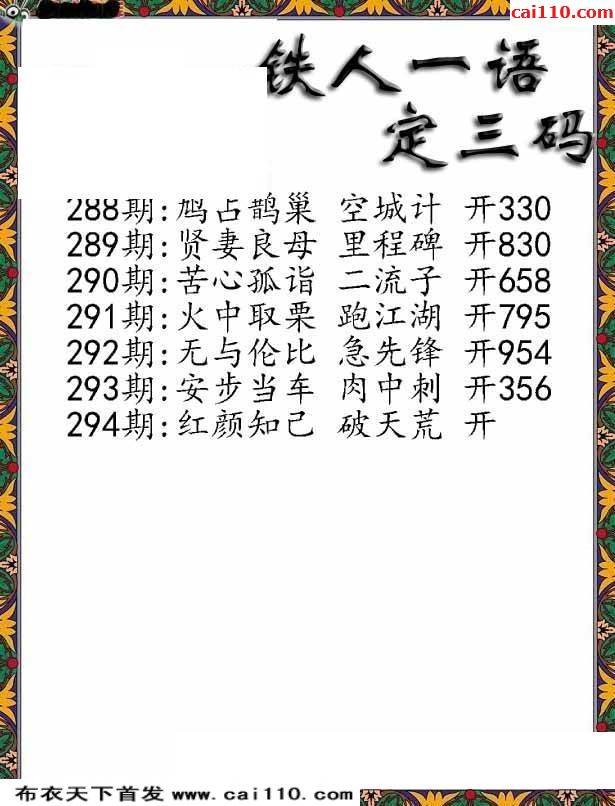 cai110.com
铁人一语
定三码
288期:鸠占鹊巢 空城计 开330
289期:贤妻良母 里程碑 开830
290期:苦心孤诣 二流子 开658
291期:火中取栗 跑江湖 开795
292期:无与伦比 急先锋 开954
293期:安步当车 肉中刺 开356
294期:红颜知己 破天荒 开
布衣天下首发 www.cai110.com